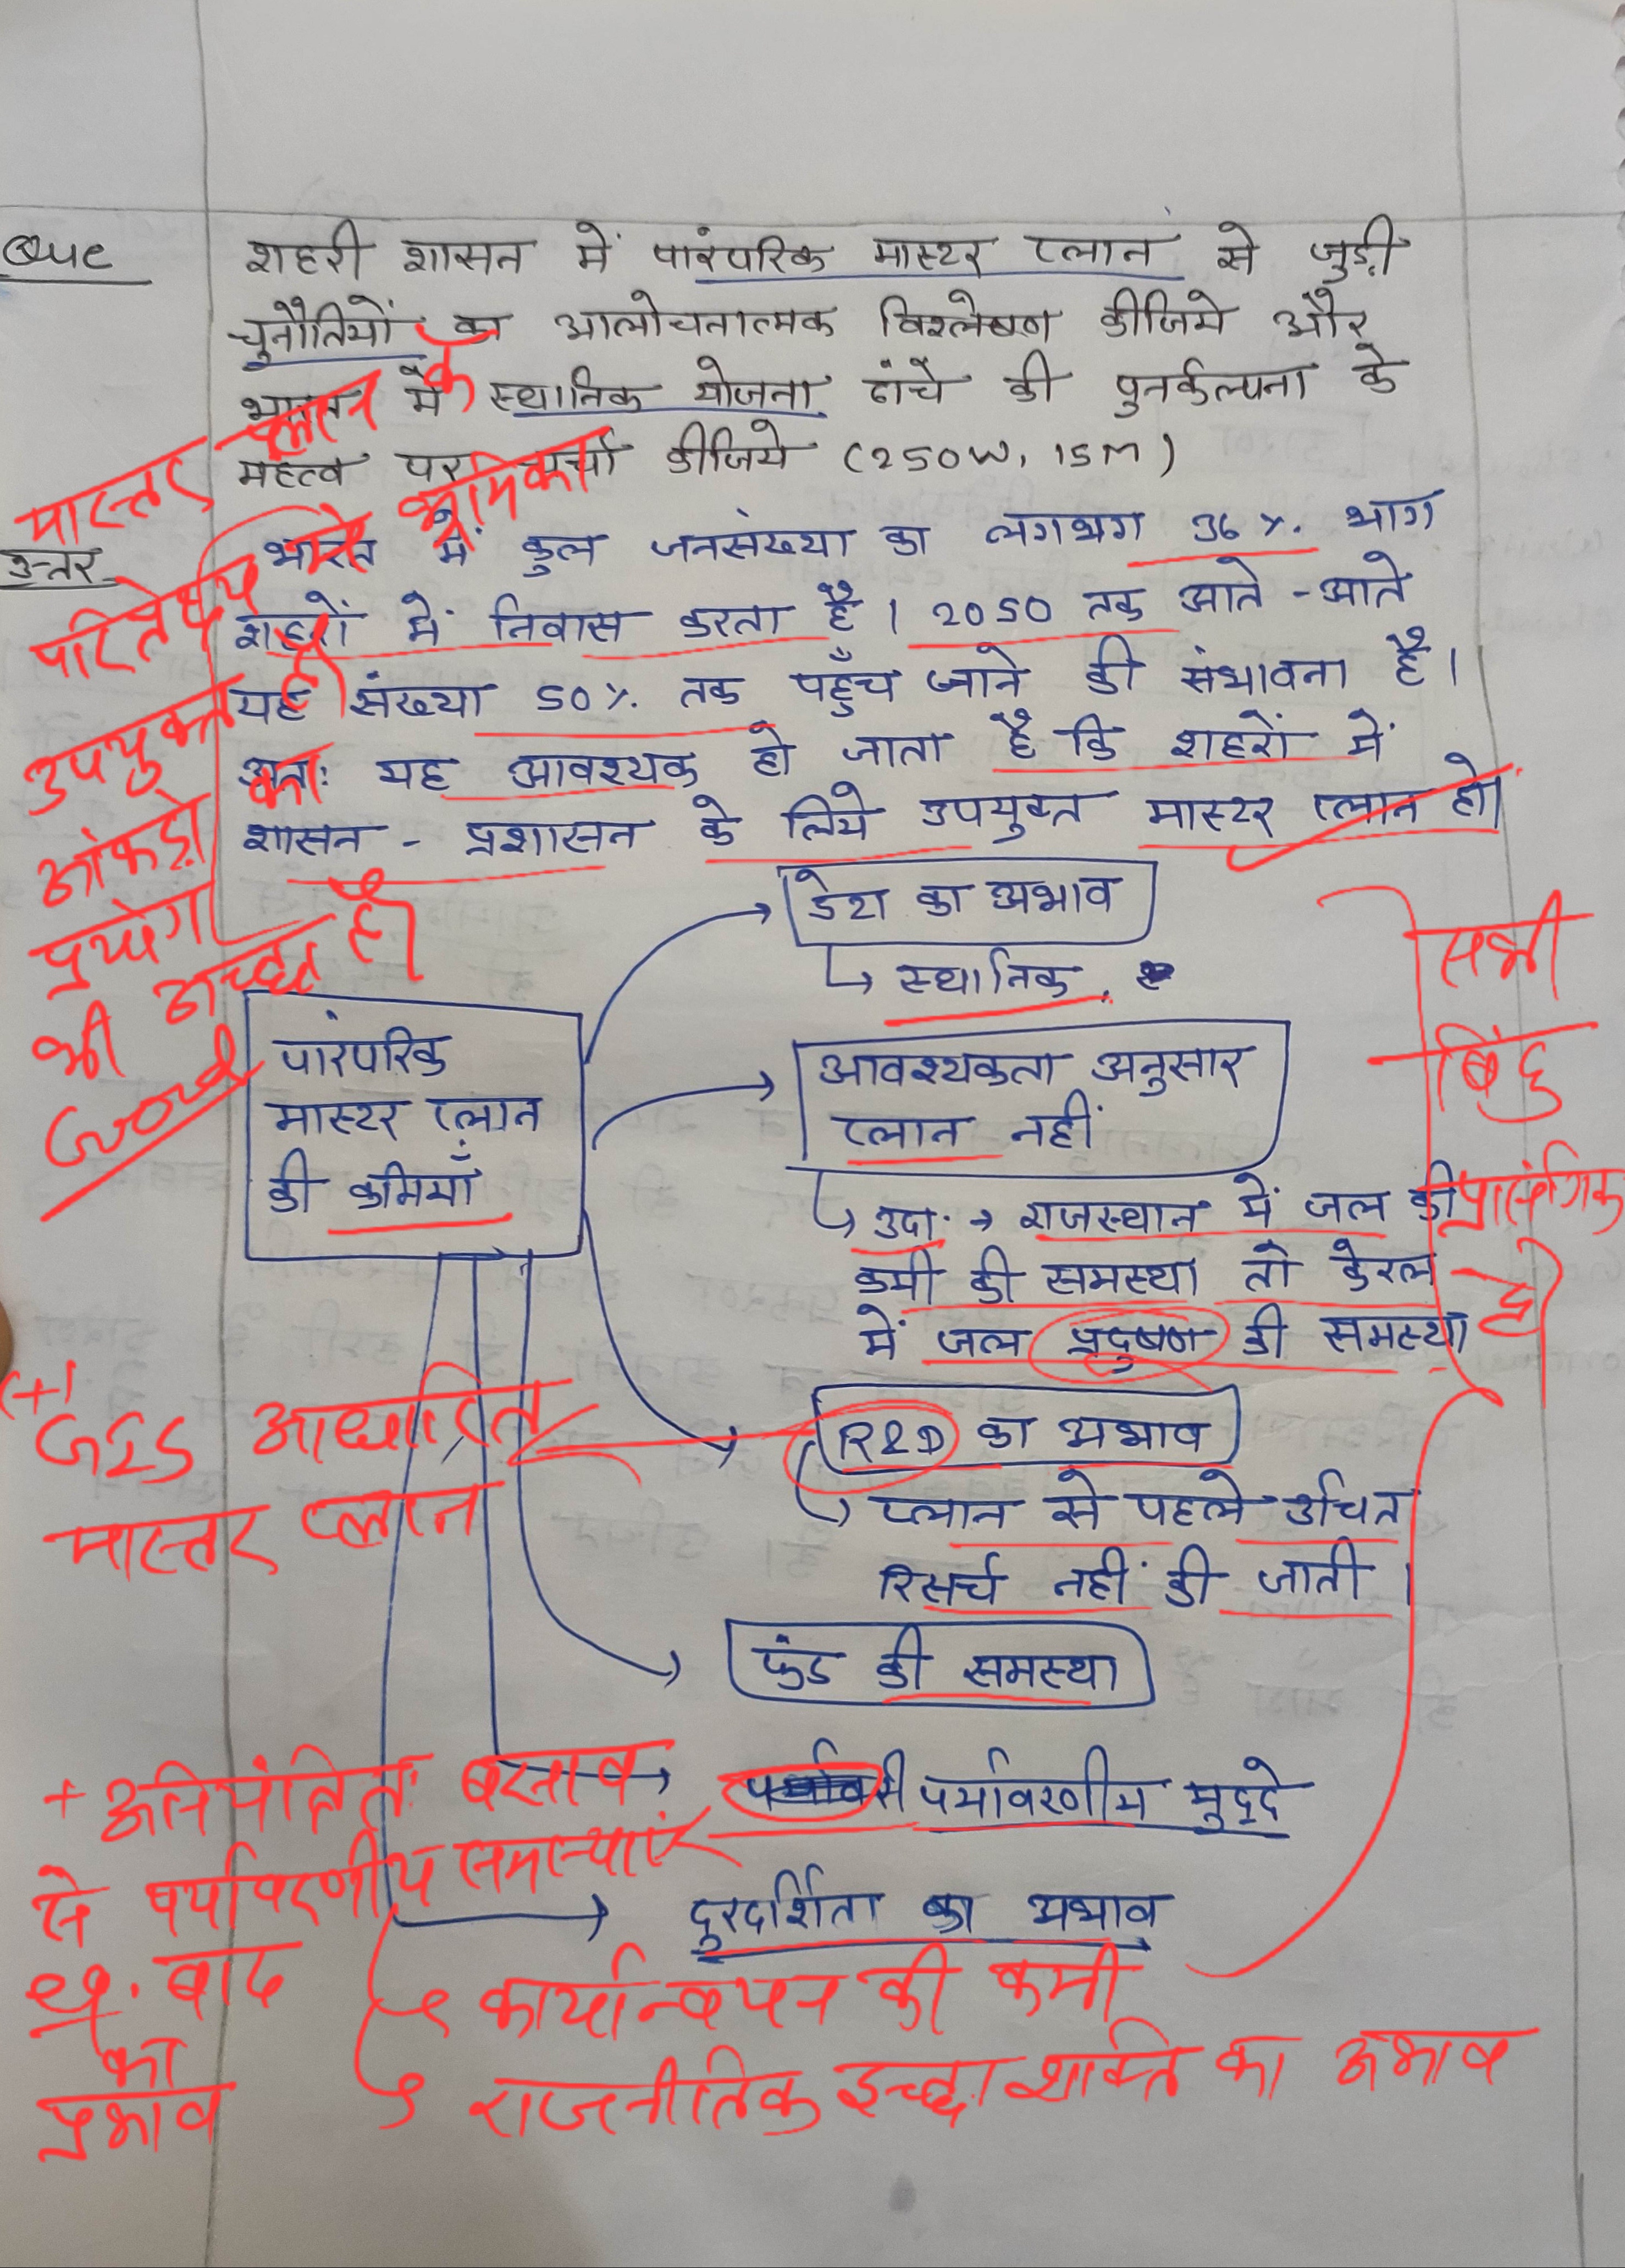 Que
शहरी शासन में पारंपरिक मास्टर प्लान से जुड़ी
चुनौतियों का आलोचनात्मक विश्लेषण कीजिये और
भारत में स्थानिक योजना ढांचे की पुनर्कल्पना के
महत्व पर चर्चा कीजिये (250W, 15M)
उत्तर
भारत में कुल जनसंख्या का लगभग 36%. भाग
शहरों में निवास करता है। 2050 तक आते-आते
यह संख्या 50%. तक पहुँच जाने की संभावना है।
अतः यह आवश्यक हो जाता है कि शहरों में
शासन - प्रशासन के लिये उपयुक्त मास्टर प्लान हो।
मास्टर प्लान के
परिप्रेक्ष्य में भूमिका
उपयुक्त है।
आंकड़ो का
प्रयोग
भी अच्छा है।
Good
पारंपरिक
मास्टर प्लान
की कमियाँ
डेटा का अभाव
↳ स्थानिक
आवश्यकता अनुसार
प्लान नहीं
↳ उदा. → राजस्थान में जल की
कमी की समस्या तो केरल
में जल प्रदुषण की समस्या
सभी
बिंदु
प्रासंगिक
है
R&D का अभाव
↳ प्लान से पहले उचित
रिसर्च नहीं की जाती।
(+)
GIS आधारित
मास्टर प्लान
फंड की समस्या
पर्यावरणीय मुद्दे
दुरदर्शिता का अभाव
+ अनियंत्रित बसाव
से पर्यावरणीय समस्याएं
बाढ़
का
प्रभाव
कार्यान्वयन की कमी
राजनीतिक इच्छाशक्ति का अभाव